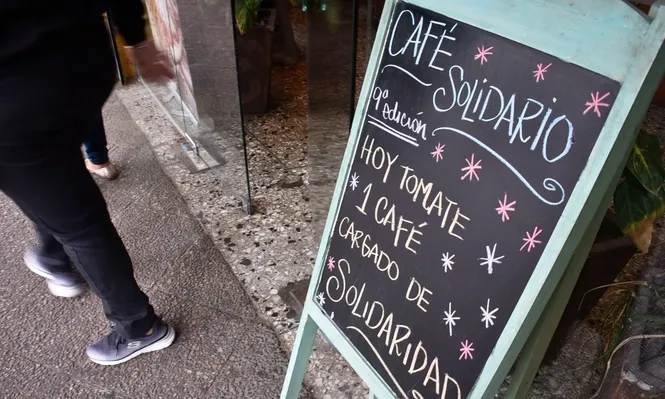 CAFÉ
SOLIDARIO
9ª edición
HOY TOMATE
1 CAFÉ
CARGADO DE
SOLIDARIDAD